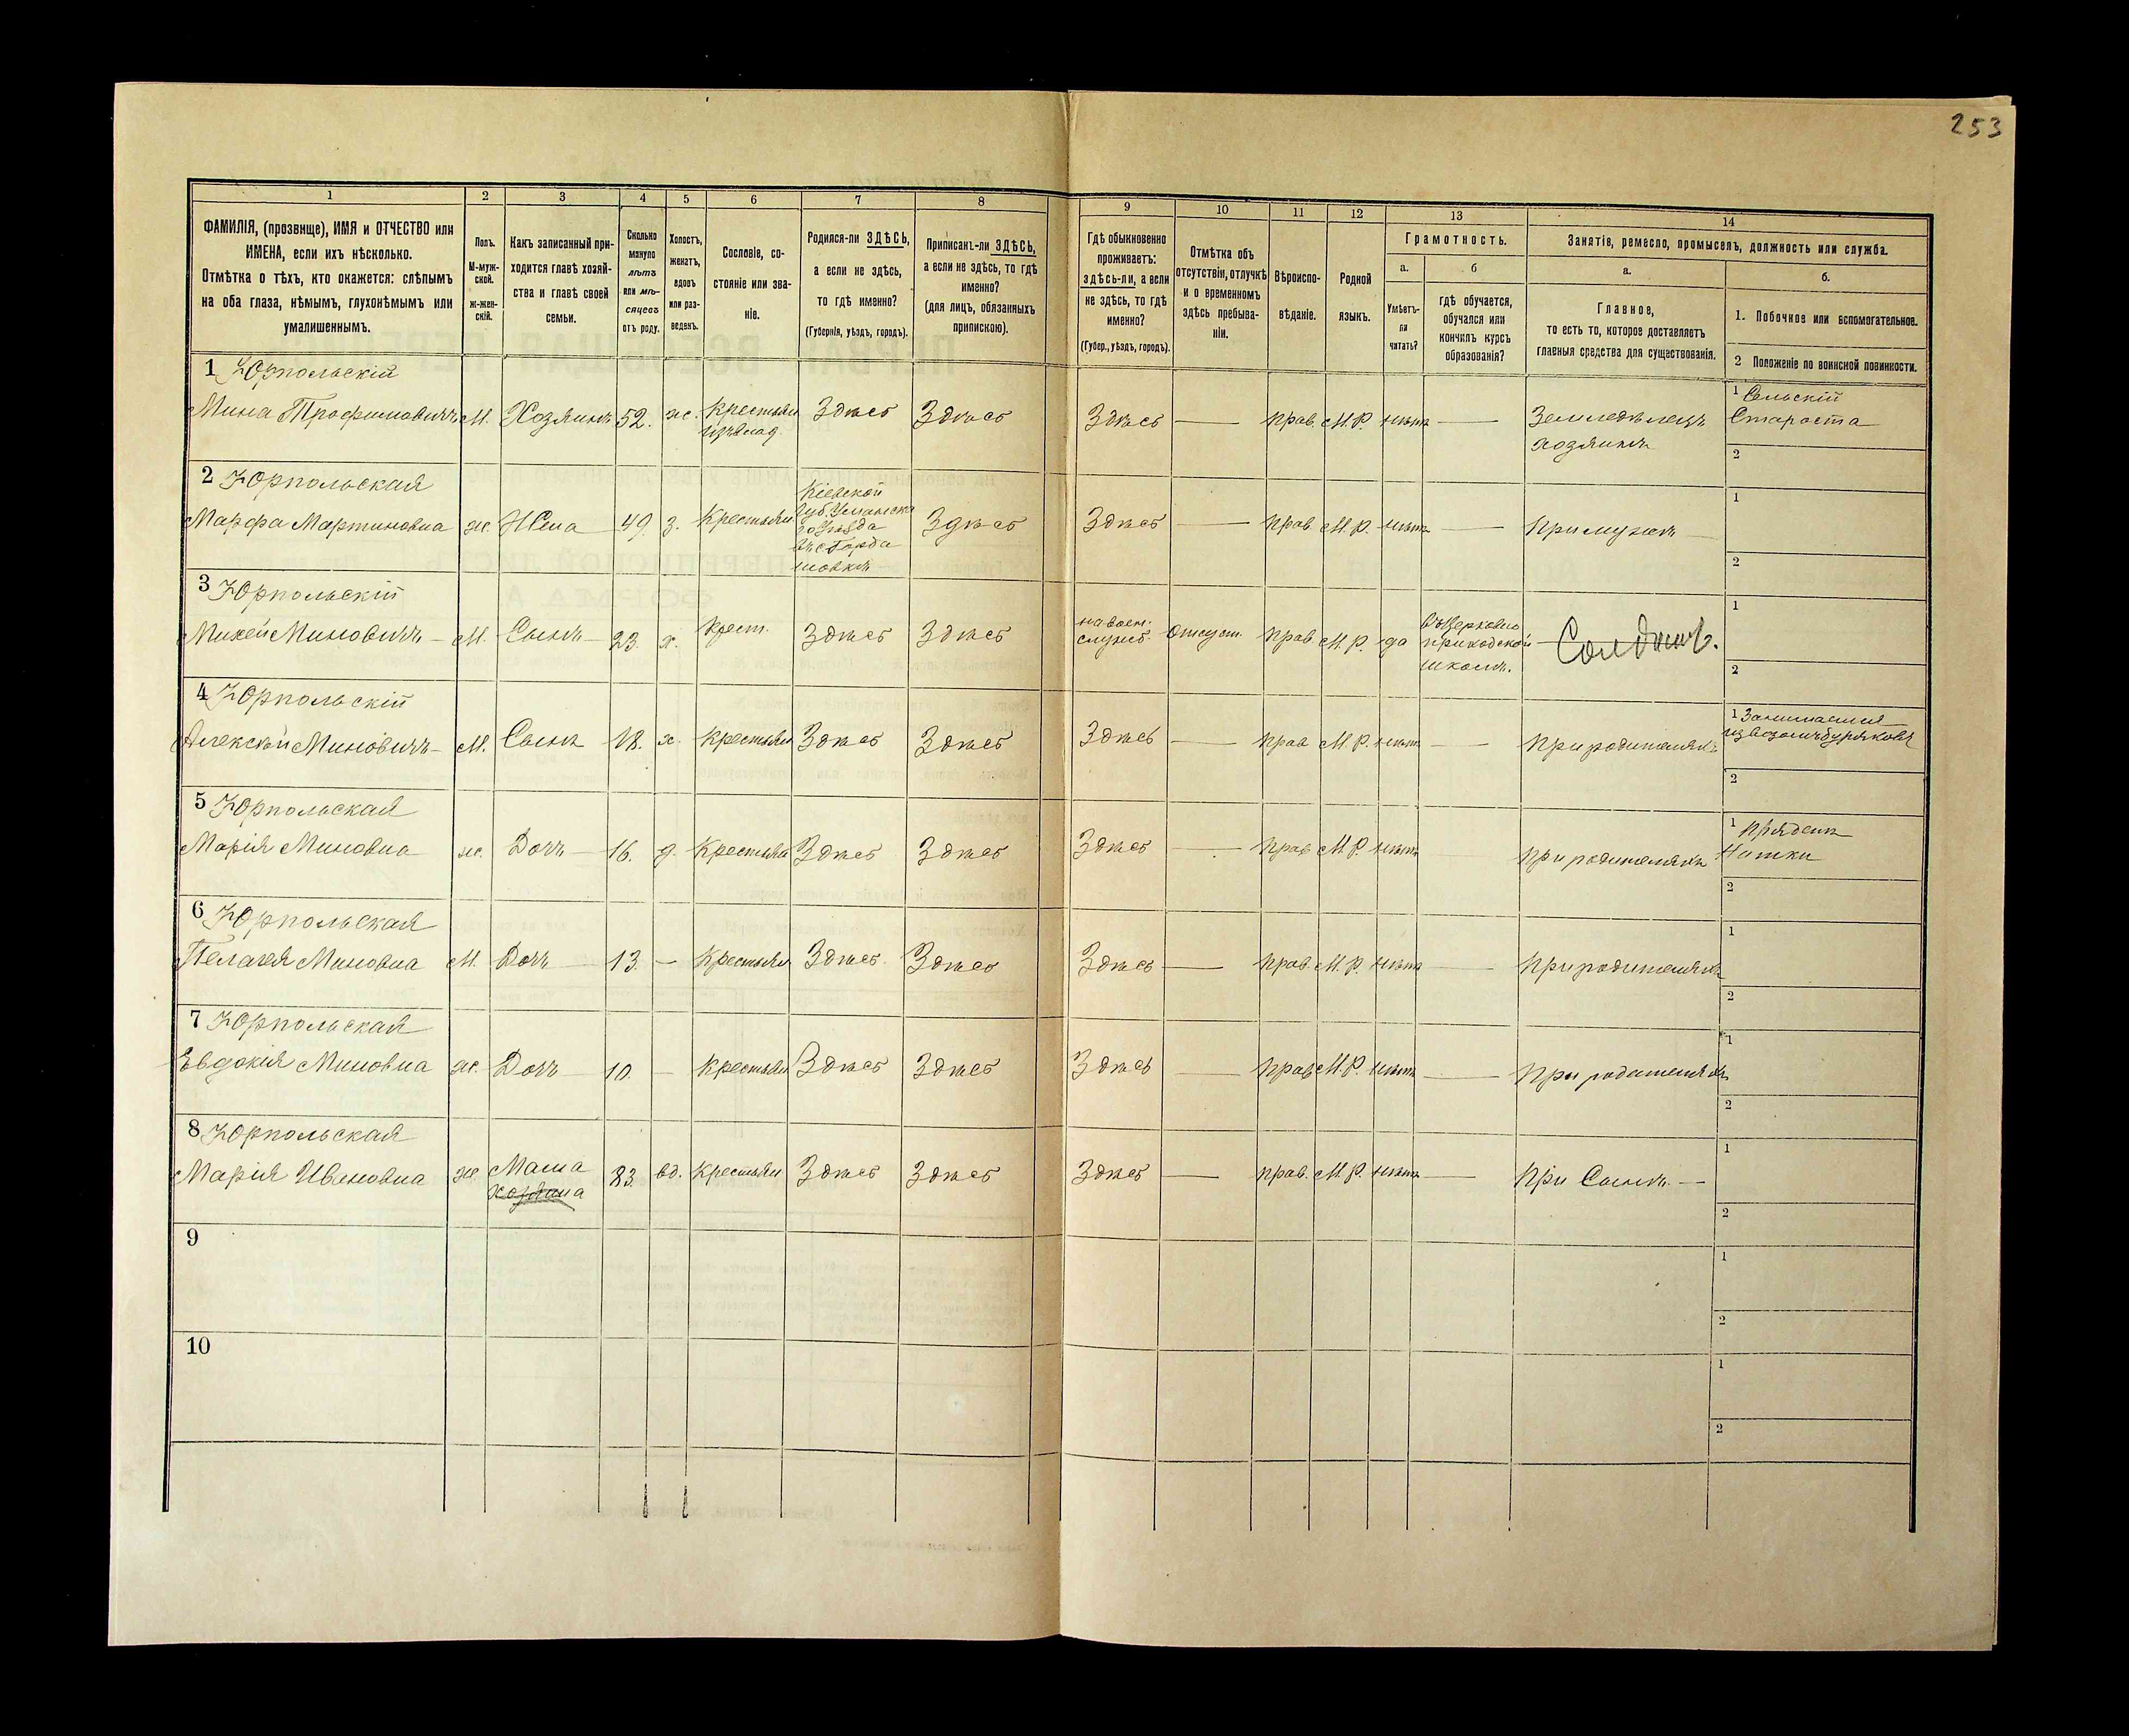 253
1 2 3 4 5 6 7 8 9 10 11 12 13 14
ФАМИЛІЯ, (прозвище), ИМЯ и ОТЧЕСТВО или
ИМЕНА, если ихъ нѣсколько.
Отмѣтка о тѣхъ, кто окажется: слѣпымъ
на оба глаза, нѣмымъ, глухонѣмымъ или
умалишеннымъ.
Полъ.
М-муж-
ской.
Ж-жен-
скій.
Какъ записанный при-
ходится главѣ хозяй-
ства и главѣ своей
семьи.
Сколько
минуло
лѣтъ
или мѣ-
сяцевъ
отъ роду.
Холостъ,
женатъ,
вдовъ
или раз-
веденъ.
Сословіе, со-
стояніе или зва-
ніе.
Родился-ли ЗДѢСЬ,
а если не здѣсь,
то гдѣ именно?
(Губернія, уѣздъ, городъ).
Приписанъ-ли ЗДѢСЬ,
а если не здѣсь, то гдѣ
именно?
(для лицъ, обязанныхъ
припискою).
Гдѣ обыкновенно
проживаетъ:
здѣсь-ли, а если
не здѣсь, то гдѣ
именно?
(Губер., уѣздъ, городъ).
Отмѣтка объ
отсутствіи, отлучкѣ
и о временномъ
здѣсь пребыва-
ніи.
Вѣроиспо-
вѣданіе.
Родной
языкъ.
Грамотность.
а.
Умѣетъ-
ли
читать?
б
гдѣ обучается,
обучался или
кончилъ курсъ
образованія?
Занятіе, ремесло, промыселъ, должность или служба.
а.
Главное,
то есть то, которое доставляетъ
главныя средства для существованія.
б.
1. Побочное или вспомогательное.
2 Положеніе по воинской повинности.
1 Юрпольскій
Мина Трофимовичъ М. Хозяинъ 52. ж. Крестьян Здѣсь Здѣсь Здѣсь — прав. М.Р. нѣтъ — Земледѣлецъ
хозяинъ
1 Сельскій
Староста
2
2 Юрпольская
Марфа Мартиновна ж. Жена 49. з. Крестьян
Кіевской
Губ. Уманска
го Уѣзда
Здѣсь Здѣсь — прав М.Р. нѣтъ — При мужѣ
1
2
3 Юрпольскій
Михей Миновичъ М. Сынъ 23. х. Крест. Здѣсь Здѣсь
на воен.
служб. Отсут. прав М.Р. да
въ Церковно
приходской
школѣ.
Солдатъ.
1
2
4 Юрпольскій
Алексѣй Миновичъ М. Сынъ 18. х. Крестьян Здѣсь Здѣсь Здѣсь — прав М.Р. нѣтъ — При родителяхъ
1 Занимается
извозомъ буряковъ
2
5 Юрпольская
Марія Миновна ж. Дочь 16. д. Крестьян Здѣсь Здѣсь Здѣсь — прав М.Р. нѣтъ При родителяхъ
1 Прядетъ
Нитки
2
6 Юрпольская
Пелагея Миновна М. Дочь 13. — Крестьян Здѣсь Здѣсь Здѣсь — прав. М.Р. нѣтъ — При родителяхъ
1
2
7 Юрпольская
Евдокія Миновна ж. Дочь 10 — Крестьян Здѣсь Здѣсь Здѣсь — прав М.Р. нѣтъ — При родителяхъ
1
2
8 Юрпольская
Марія Ивановна ж. Мать 83. вд. Крестьян Здѣсь Здѣсь Здѣсь — прав. М.Р. нѣтъ — При Сынѣ —
1
2
9
1
2
10
1
2